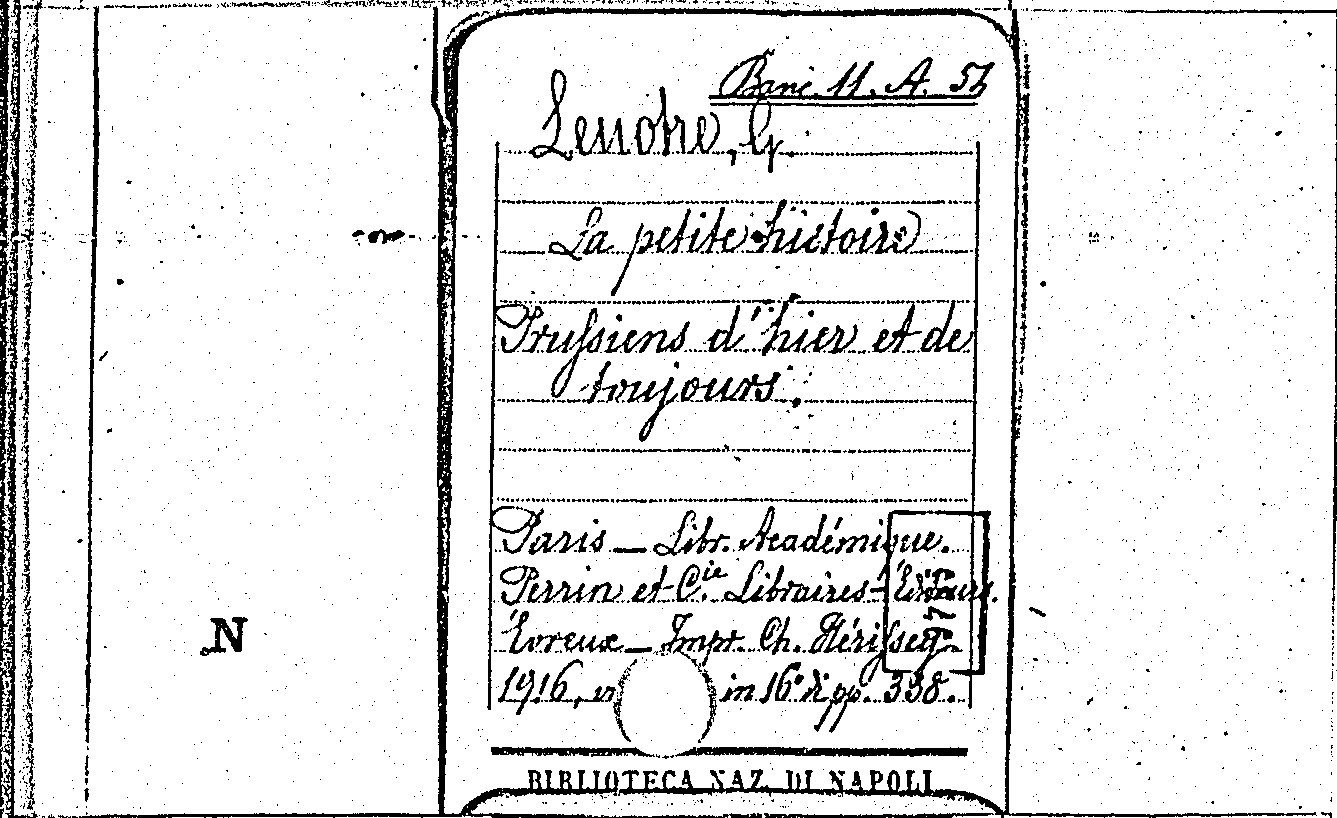 Banc. 11. A. 56
Lenotre, G.
La petite histoire
Prussiens d'hier et de
toujours.
Paris — Libr. Académique.
Perrin et C.ie Libraires-Éditeurs.
Évreux — Impr. Ch. Hérissey.
N
1916, in 16° di pp. 338.
BIBLIOTECA NAZ. DI NAPOLI